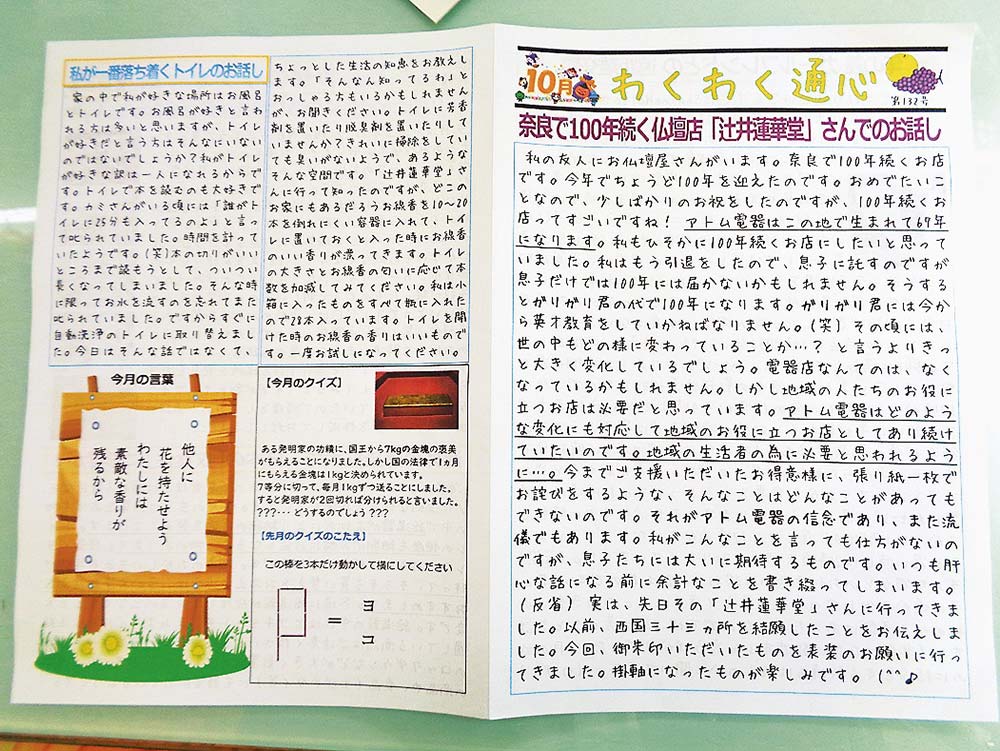 10月
わくわく通心
第132号
奈良で100年続く仏壇店「辻井蓮華堂」さんでのお話し
私の友人にお仏壇屋さんがいます。奈良で100年続くお店
です。今年でちょうど100年を迎えたのです。おめでたいこ
となので、少しばかりのお祝をしたのですが、100年続くお
店ってすごいですね！アトム電器はこの地で生まれて67年
になります。私もひそかに100年続くお店にしたいと思って
いました。私はもう引退をしたので、息子に託すのですが
息子だけでは100年には届かないかもしれません。そうする
とがりがり君の代で100年になります。がりがり君には今か
ら英才教育をしていかねばなりません。(笑) その頃には、
世の中もどの様に変わっていることか…？と言うよりきっ
と大きく変化しているでしょう。電器店なんてのは、なく
なっているかもしれません。しかし地域の人たちのお役に
立つお店は必要だと思っています。アトム電器はどのよう
な変化にも対応して地域のお役に立つお店としてあり続け
ていたいのです。地域の生活者の為に必要と思われるよう
に…。今までご支援いただいたお得意様に、張り紙一枚で
お詫びをするような、そんなことはどんなことがあっても
できないのです。それがアトム電器の信念であり、また流
儀でもあります。私がこんなことを言っても仕方がないの
ですが、息子たちには大いに期待するものです。いつも肝
心な話になる前に余計なことを書き綴ってしまいます。
(反省) 実は、先日その「辻井蓮華堂」さんに行ってきま
した。以前、西国三十三ヵ所を結願したことをお伝えしま
した。今回、御朱印いただいたものを表装のお願いに行っ
てきました。掛軸になったものが楽しみです。(^^♪
私が一番落ち着くトイレのお話し
家の中で私が好きな場所はお風呂
とトイレです。お風呂が好きと言わ
れる方は多いと思いますが、トイレ
が好きだと言う方はそんなにいない
のではないでしょうか？私がトイレ
が好きな訳は一人になれるからで
す。トイレで本を読むのも大好きで
す。カミさんがいる頃には「誰がト
イレに25分も入ってるのよ」と言っ
て叱られていました。時間を計って
いたようです。(笑)本の切りがいい
ところまで読もうとして、ついつい
長くなってしまいました。そんな時
に限ってお水を流すのを忘れてまた
叱られていました。ですからすぐに
自動洗浄のトイレに取り替えまし
た。今日はそんな話ではなくて、
ちょっとした生活の知恵をお教えし
ます。「そんなん知ってるわ」と
おっしゃる方もいるかもしれません
が、お聞きください。トイレに芳香
剤を置いたり脱臭剤を置いたりして
いませんか？きれいに掃除をしてい
ても臭いがないようで、あるような
そんな空間です。「辻井蓮華堂」さ
んに行って知ったのですが、どこの
お家にもあるだろうお線香を10～20
本を倒れにくい容器に入れて、トイ
レに置いておくと入った時にお線香
のいい香りが漂ってきます。トイレ
の大きさとお線香の匂いに応じて本
数を加減してみてください。私は小
箱に入ったものをすべて瓶に入れた
ので28本入っています。トイレを開
けた時のお線香の香りはいいもので
す。一度お試しになってください。
今月の言葉
他人に
花を持たせよう
わたしには
素敵な香りが
残るから
【今月のクイズ】
ある発明家の功績に、国王から7kgの金塊の褒美
がもらえることになりました。しかし国の法律で1ヵ月
にもらえる金塊は1kgと決められています。
7等分に切って、毎月1kgずつ送ることにしました。
すると発明家が2回切れば分けられると言いました。
???… どうするのでしょう ???
【先月のクイズのこたえ】
この棒を3本だけ動かして横にしてください
=
ヨ
コ